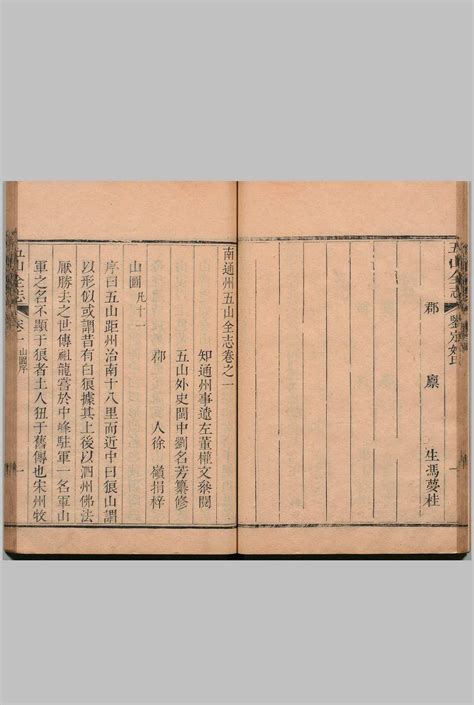 五山全志 姓氏
郡 廩 生馮夢桂
南通州五山全志卷之一
知通州事遼左董權文參閱
五山外史閩中劉名芳纂修
郡 人徐 嶺捐梓
山圖 凡十一
序曰五山距州治南十八里而近中曰狼山謂
以形似或謂昔有白狼據其上後以泗州佛法
厭勝去之世傳祖龍嘗於中峰駐軍一名軍山
軍之名不顯于狼者土人狃于舊傳也宋州牧
五山全志 卷一 山圖序 一